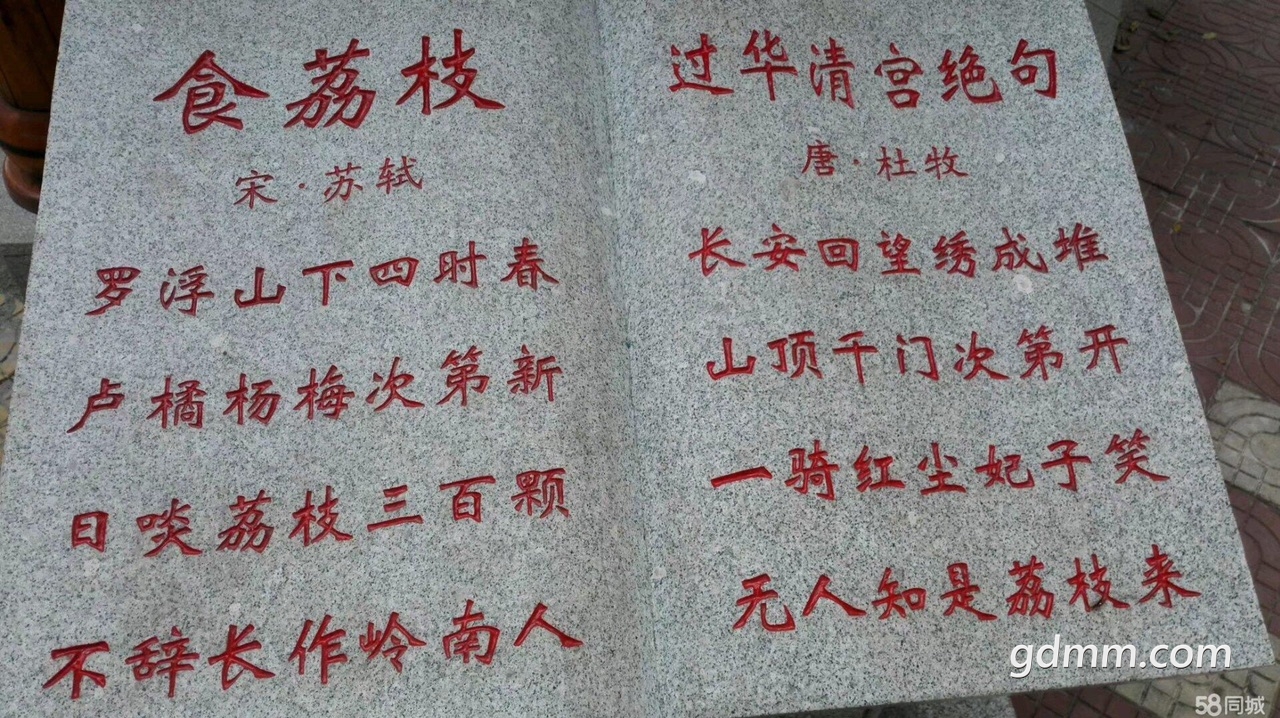 食荔枝
宋·苏轼
罗浮山下四时春
卢橘杨梅次第新
日啖荔枝三百颗
不辞长作岭南人
过华清宫绝句
唐·杜牧
长安回望绣成堆
山顶千门次第开
一骑红尘妃子笑
无人知是荔枝来
gdmm.com
58同城